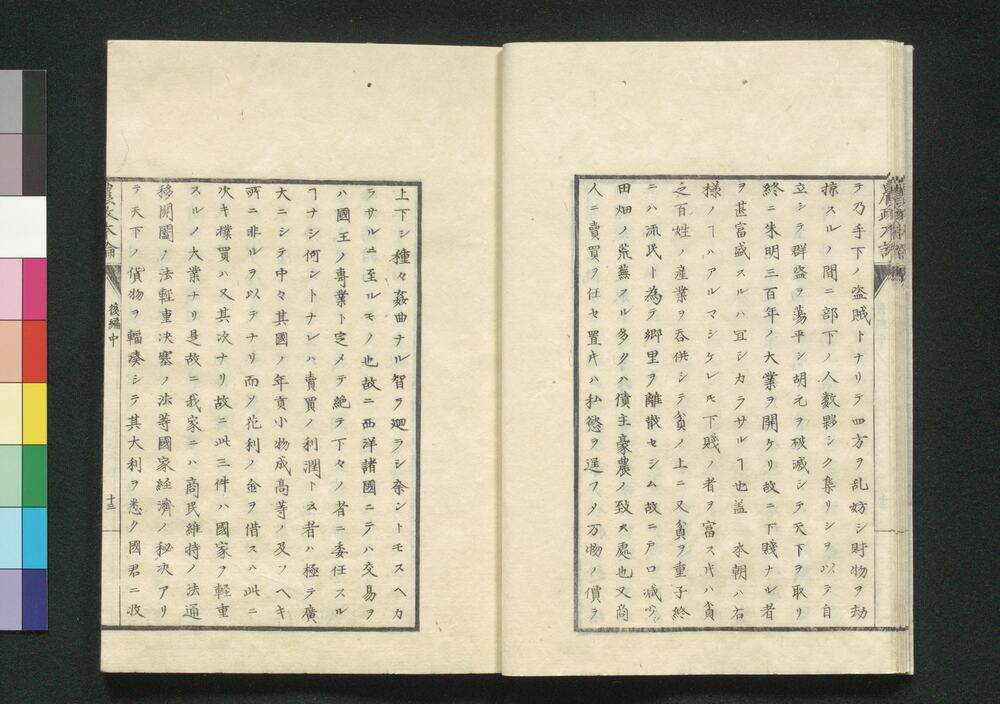 テ乃手下ノ盗賊トナリテ四方ヲ乱妨シ財物ヲ劫
掠スルノ間ニ部下ノ人数夥シク集リシヲ以テ自
立シテ群盗ヲ蕩平シ胡元ヲ破滅シテ天下ヲ取リ
終ニ朱明三百年ノ大業ヲ開ケリ故ニ下賤ナル者
ヲ甚富盛スルハ冝シカラサルヿ也蓋 本朝ハ右
様ノヿハアルマシケレ𪜈下賤ノ者ヲ富ス𪜈ハ貧
之百姓ノ産業ヲ呑併シテ貧ノ上ニ又貧ヲ重子終
ニハ流民ト為テ郷里ヲ離散セシム故ニ戸口減少
田畑ノ荒蕪スル多クハ債主豪農ノ致ス處也又商
人ニ賣買ヲ任セ置𪜈ハ私慾ヲ逞フメ万物ノ價ヲ
上下シ種々姦曲ナル智ヲ廻ラシ奈ントモスヘカ
ラサルニ至ルモノ也故ニ西洋諸國ニテハ交易ヲ
ハ國王ノ専業ト定メテ絶テ下々ノ者ニ委任スル
ヿナシ何ントナレハ賣買ノ利潤トユ者ハ極テ廣
大ニシテ中々其國ノ年貢小物成高等ノ及フヘキ
所ニ非ルヲ以テナリ而メ花利ノ金ヲ借スハ此ニ
次キ糶買ハ又其次ナリ故ニ此三件ハ國家ヲ軽重
スルノ大業ナリ是故ニ我家ニハ商民維持ノ法通
移開闔ノ法輕重决塞ノ法等國家経濟ノ秘决アリ
テ天下ノ貨物ヲ輻湊シテ其大利ヲ悉ク國君ニ收
農政本論
後編中
十三